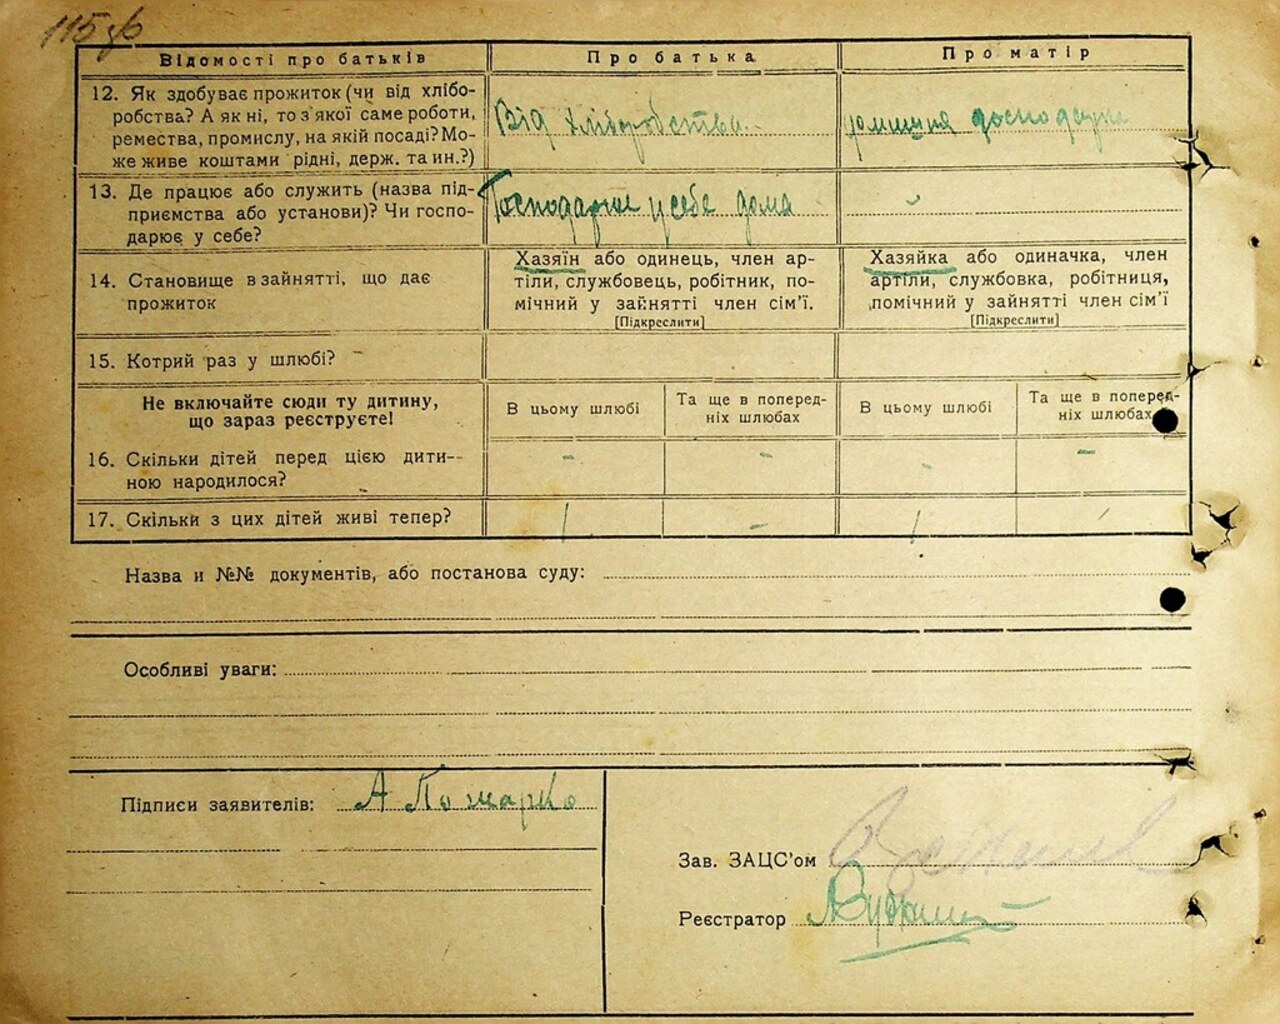 115 зв
Відомості про батьків
Про батька
Про матір
12. Як здобуває прожиток (чи від хлібо-
робства? А як ні, то з якої саме роботи,
ремества, промислу, на якій посаді? Мо-
же живе коштами рідні, держ. та ин.?)
Від хліборобства
домашня господарка
13. Де працює або служить (назва під-
приємства або установи)? Чи госпо-
дарює у себе?
Господарює у себе дома
14. Становище в зайнятті, що дає
прожиток
Хазяїн або одинець, член ар-
тіли, службовець, робітник, по-
мічний у зайнятті член сім'ї.
[Підкреслити]
Хазяйка або одиначка, член
артіли, службовка, робітниця,
помічний у зайнятті член сім'ї
[Підкреслити]
15. Котрий раз у шлюбі?
Не включайте сюди ту дитину,
що зараз реєструєте!
В цьому шлюбі
Та ще в поперед-
ніх шлюбах
В цьому шлюбі
Та ще в поперед-
ніх шлюбах
16. Скільки дітей перед цією дити--
ною народилося?
- - - -
17. Скільки з цих дітей живі тепер?
Назва и №№ документів, або постанова суду:
Особливі уваги:
Підписи заявителів: А Пожарко
Зав. ЗАЦС'ом
Реєстратор